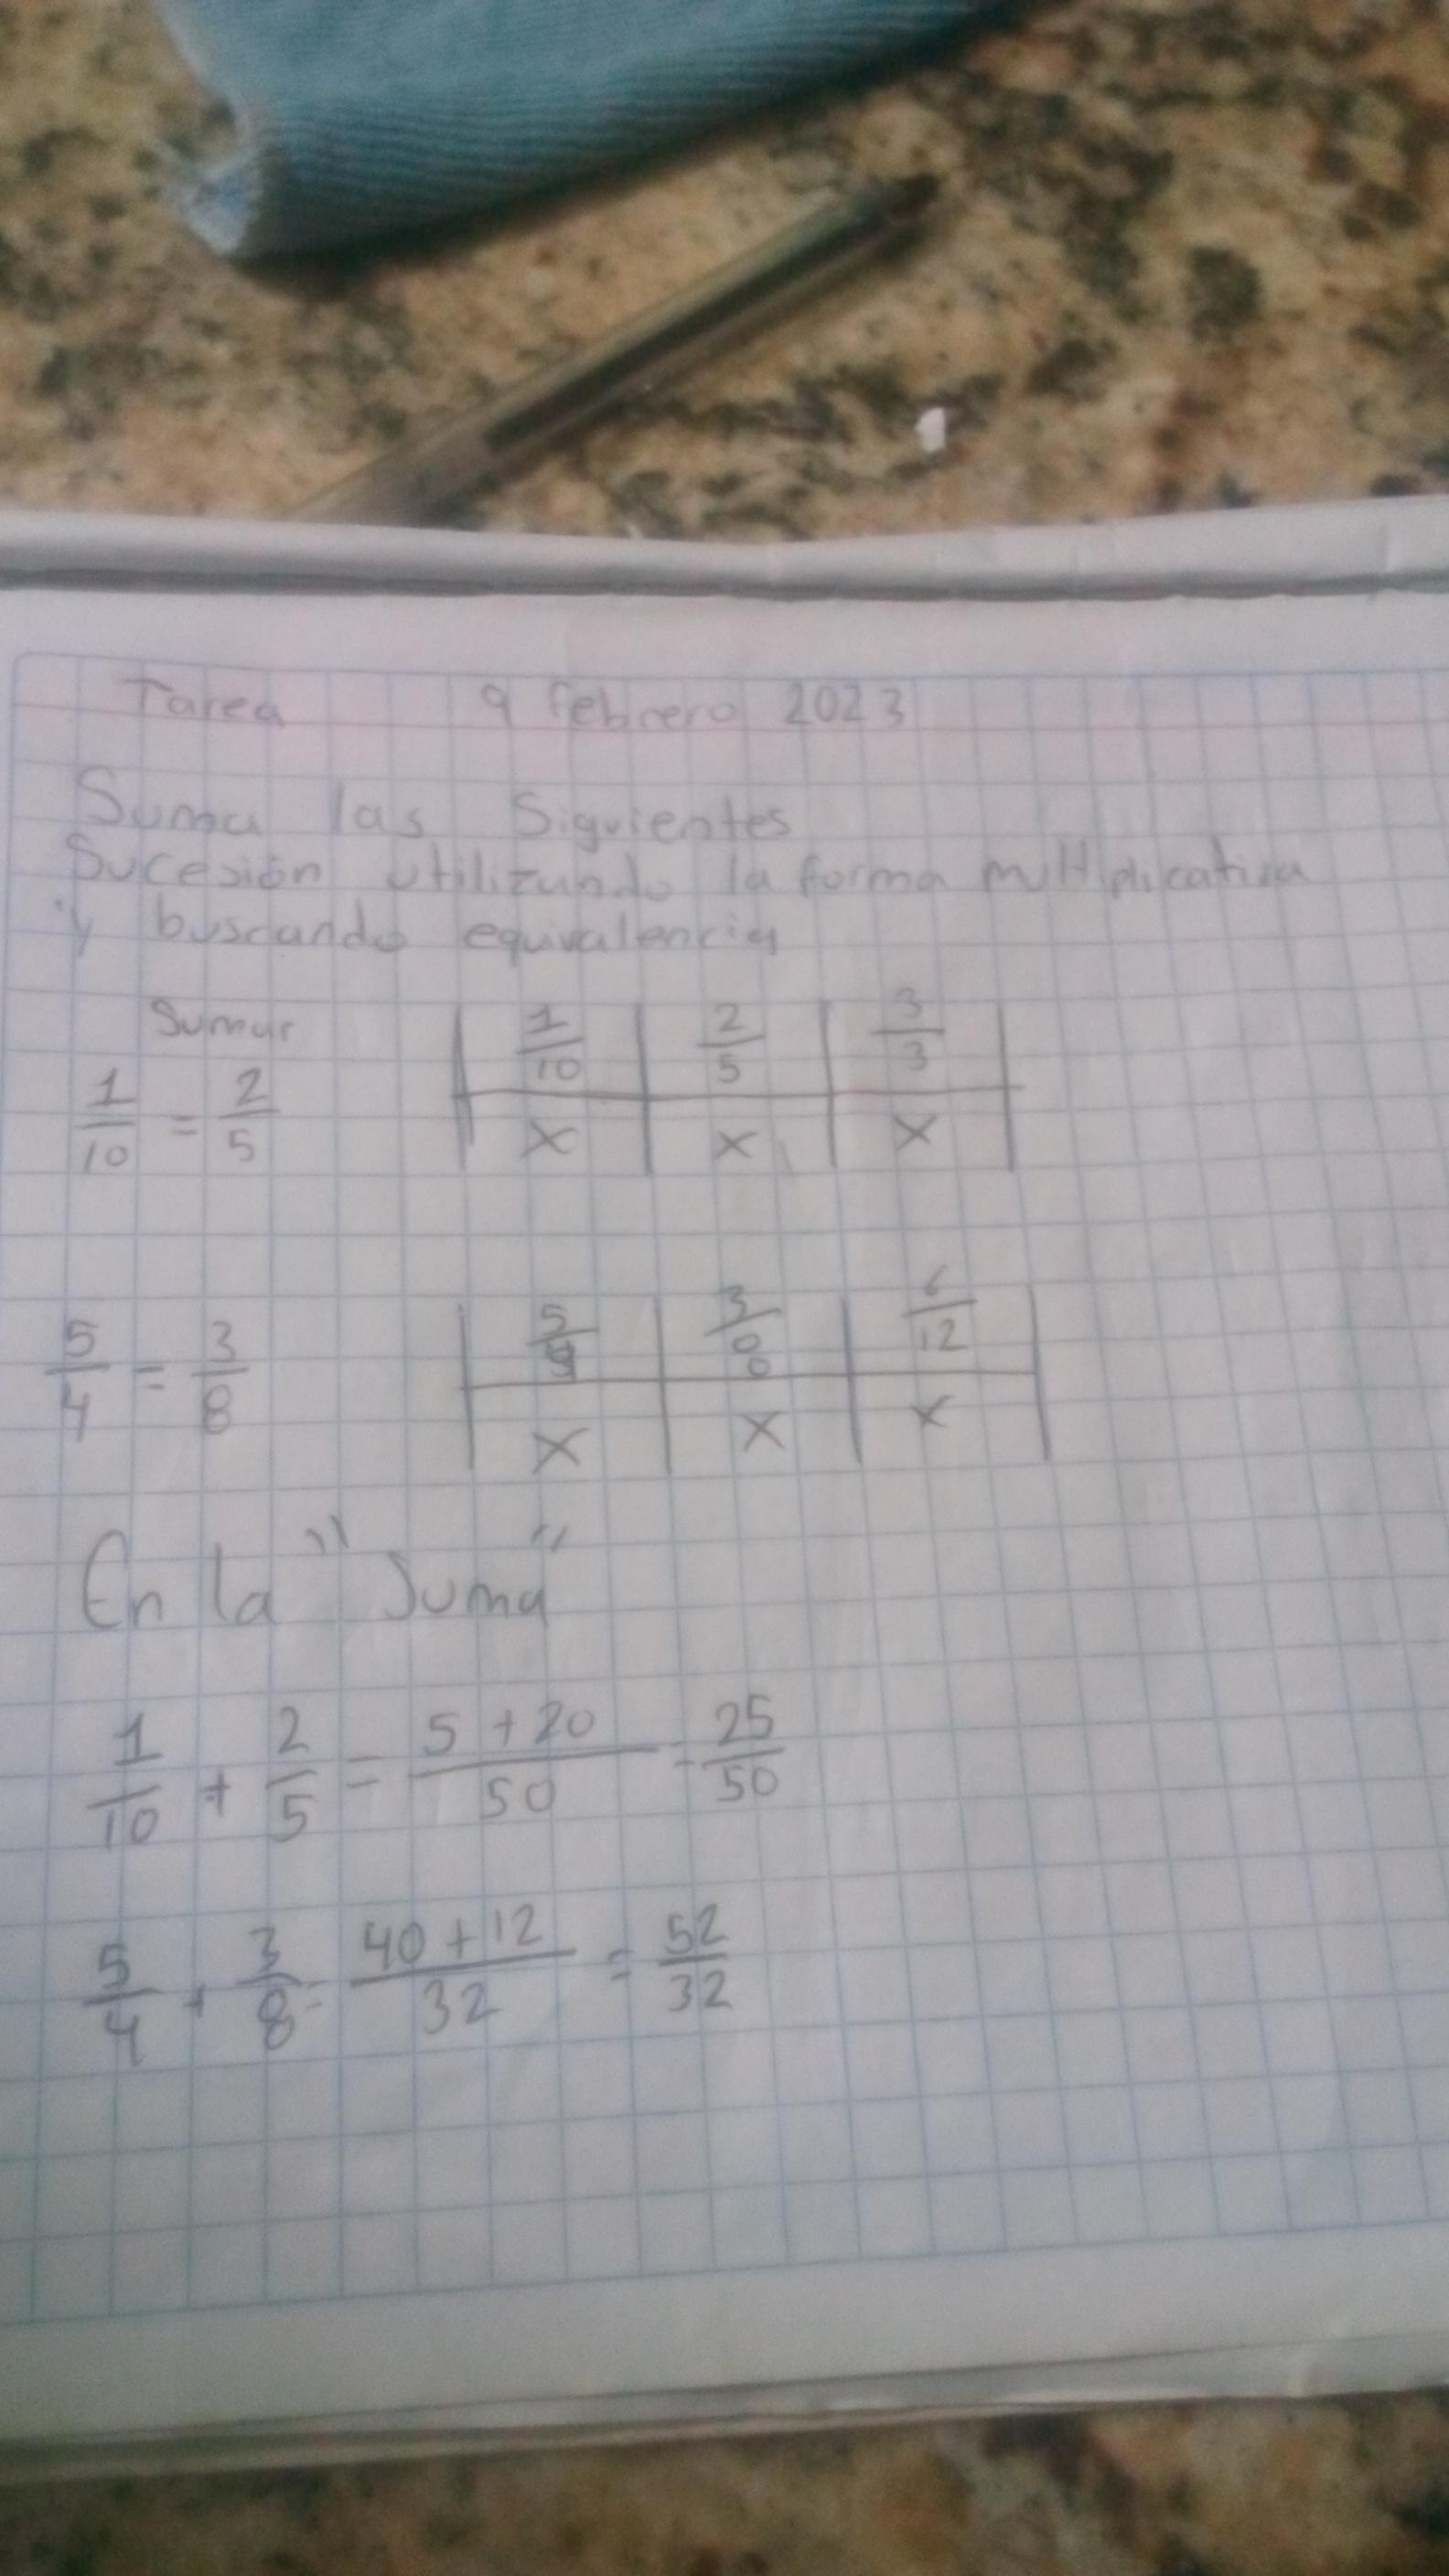 Tarea 9 febrero 2023
Suma las Siguientes
Sucesión utilizando la forma multiplicativa
y buscando equivalencia
Sumar
1/10 = 2/5 | 1/10 | 2/5 | 3/3 |
| x | x | x |
5/4 = 3/8 | 5/4 | 3/8 | 6/12 |
| x | x | x |
En la "Suma"
1/10 + 2/5 = 5 + 20/50 = 25/50
5/4 + 3/8 = 40 + 12/32 = 52/32